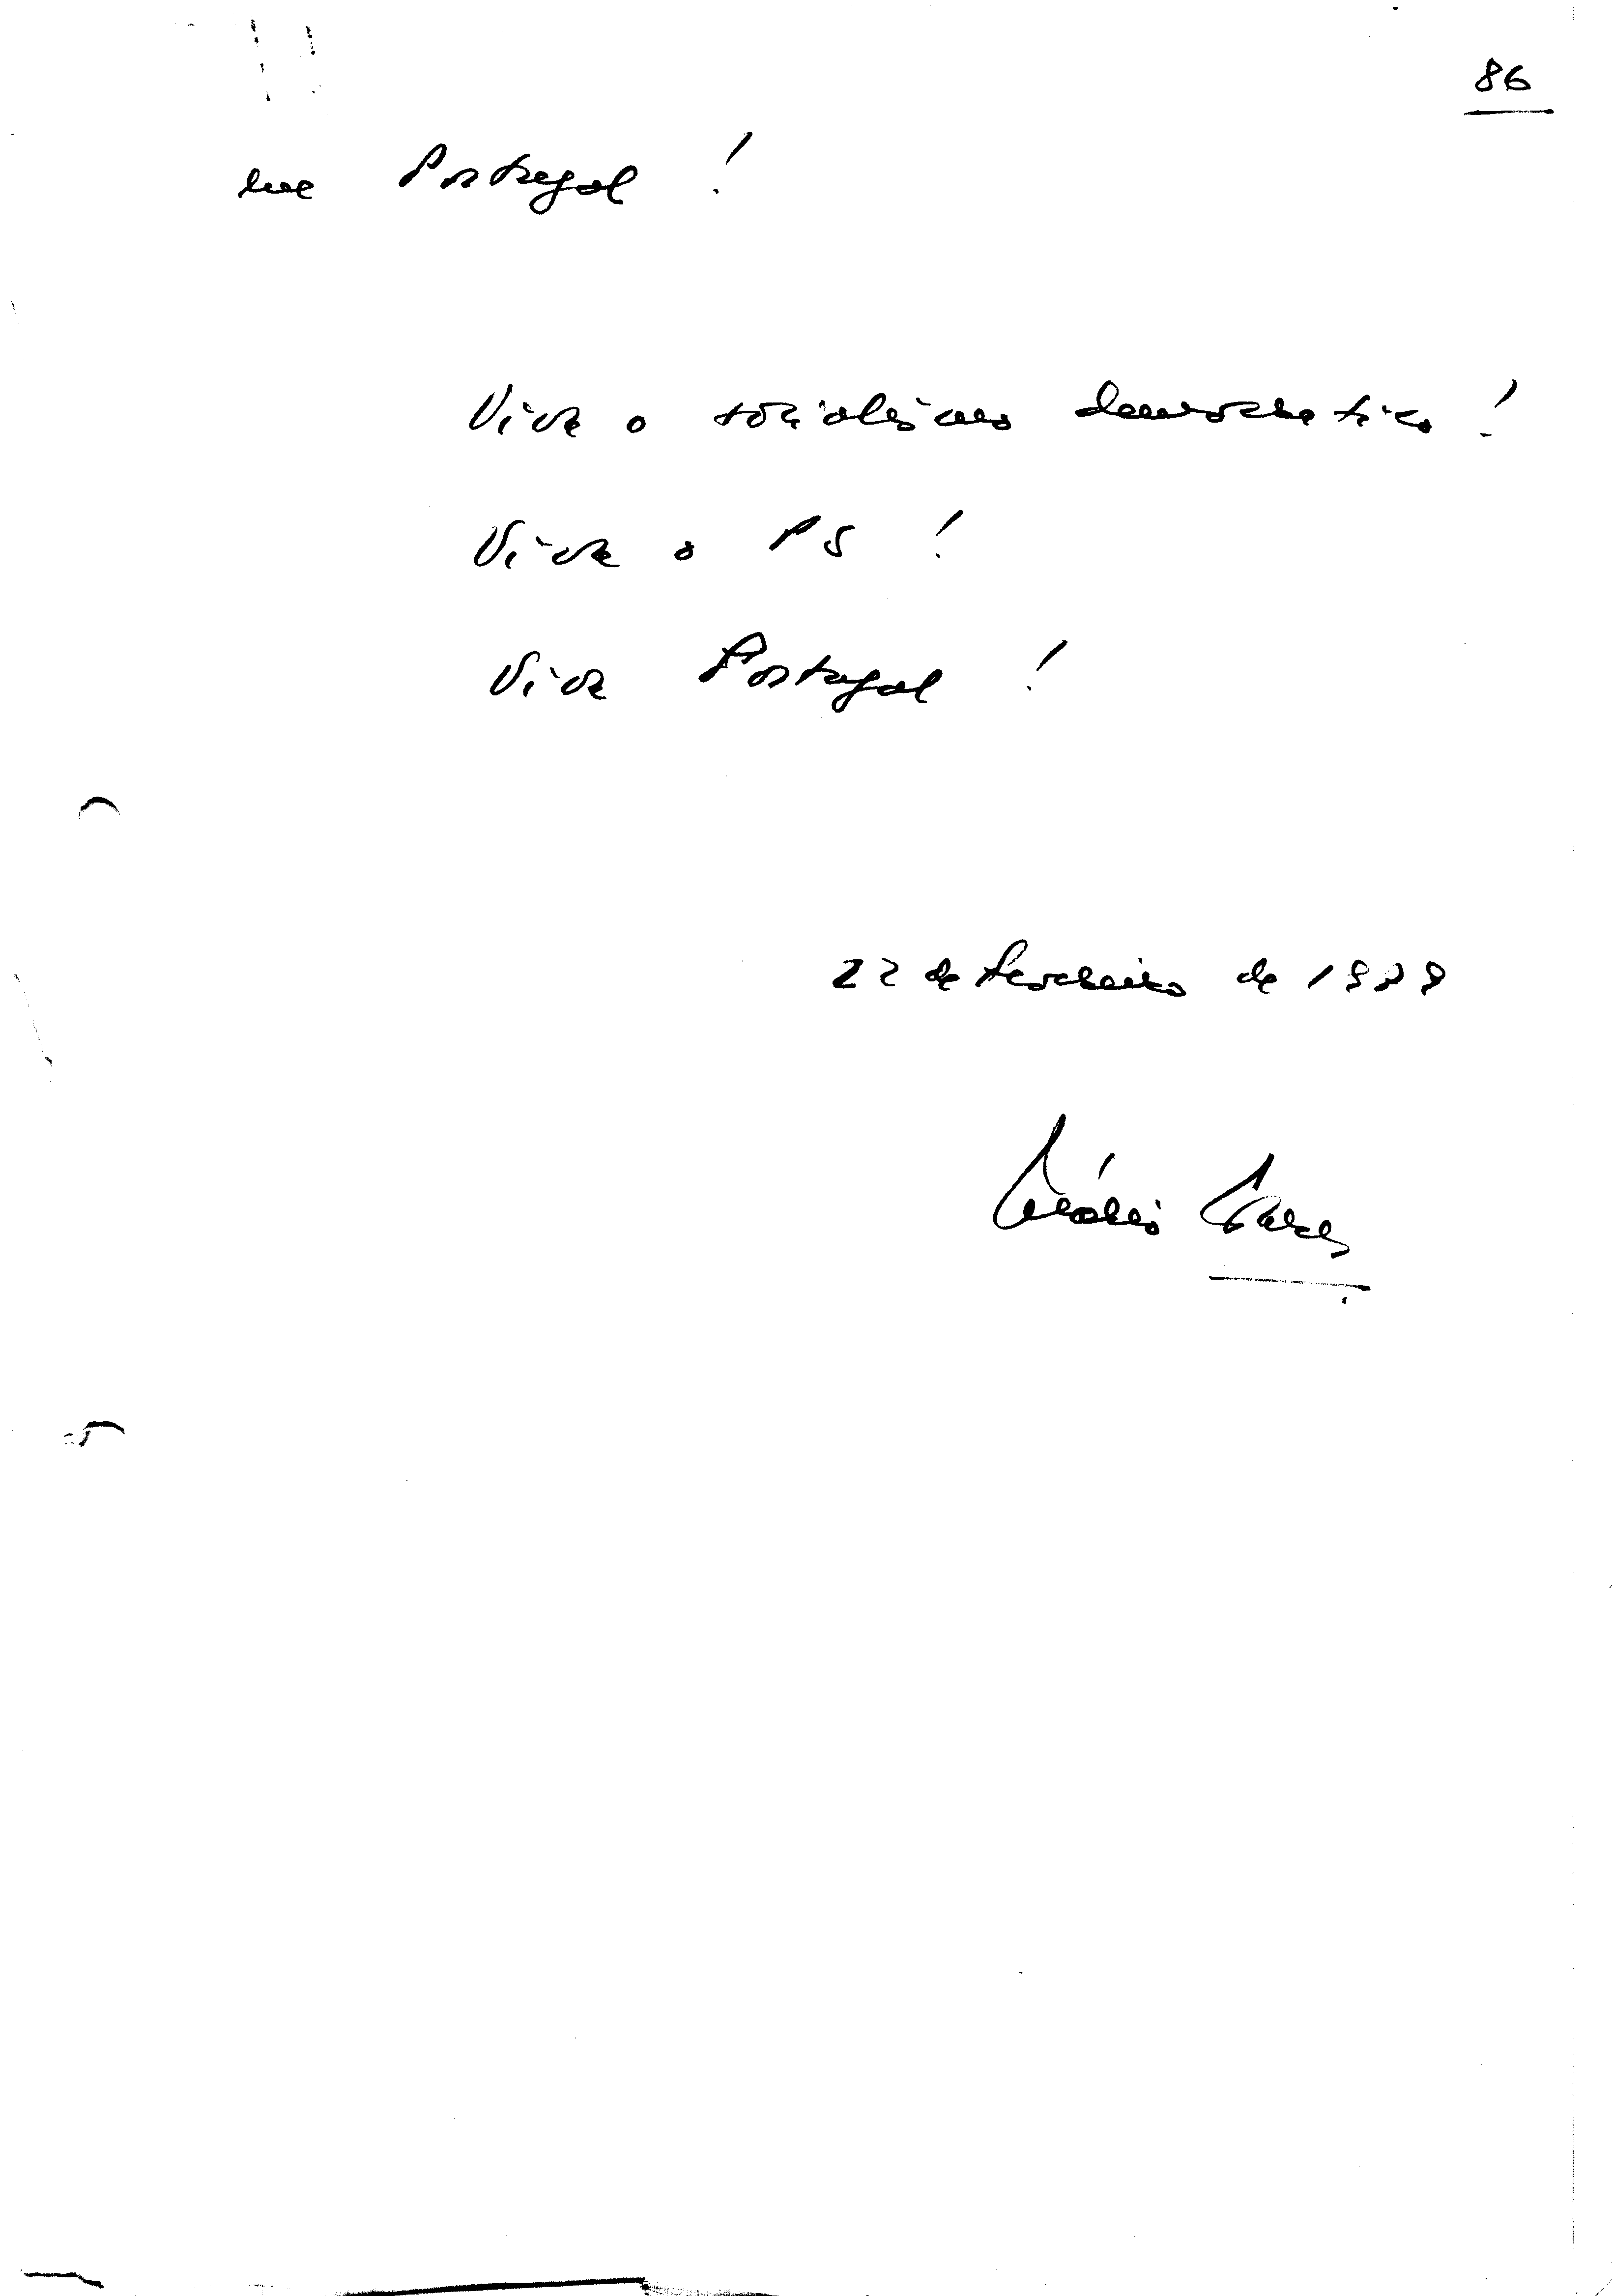 86
Portugal !
Viva o socialismo democrático !
Viva o PS !
Viva Portugal !
22 de Fevereiro de 1979
Mário Soares